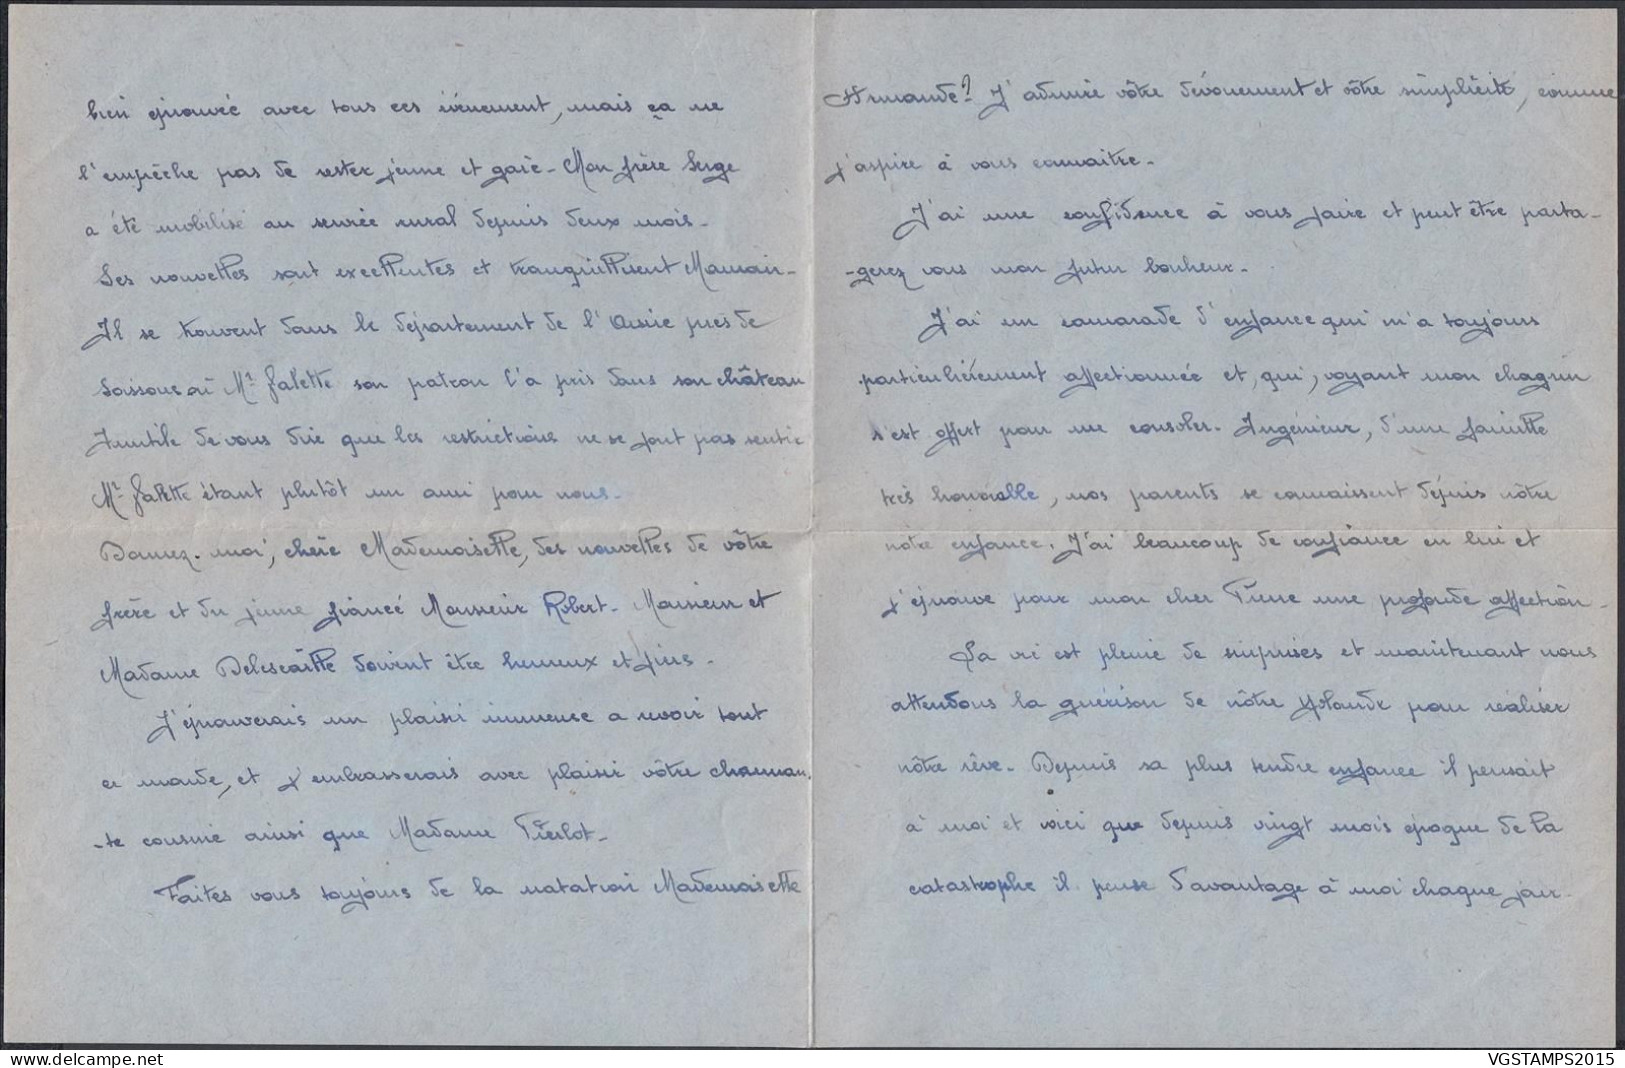 bien éprouvée avec tous ces évènement, mais ça ne
l'empêche pas de rester jeune et gaie - Mon frère Serge
a été mobilisé au service rural depuis deux mois -
Ses nouvelles sont excellentes et tranquillisent Maman -
Il se trouvent dans le département de l'Aisne près de
Soissons où Mr Falette son patron l'a pris dans son château
Inutile de vous dire que les restrictions ne se font pas sentir
Mr Falette étant plutôt un ami pour nous -
Donnez-moi, chère Mademoiselle, des nouvelles de vôtre
frère et du jeune fiancé Monsieur Robert - Monsieur et
Madame doivent être heureux et fiers -
J'éprouverais un plaisir immense a revoir tout
ce monde, et j'embrasserais avec plaisir vôtre charman
-te cousine ainsi que Madame Pierlot -
Faites vous toujours de la natation Mademoiselle
Armande ? J'admire vôtre dévouement et vôtre simplicité, comme
j'aspire à vous connaitre -
J'ai une confidence à vous faire et peut être parta-
-gerez vous mon futur bonheur -
J'ai un camarade d'enfance qui m'a toujours
particulièrement affectionnée et, qui, voyant mon chagrin
s'est offert pour me consoler - Ingénieur, d'une famille
très honorable, nos parents se connaissent depuis nôtre
nôtre enfance. J'ai beaucoup de confiance en lui et
j'éprouve pour mon cher une profonde affection -
La vie est pleine de surprises et maintenant nous
attendons la guérison de nôtre Yolande pour réaliser
nôtre rêve - Depuis sa plus tendre enfance il pensait
à moi et voici que depuis vingt mois époque de la
catastrophe il pense davantage à moi chaque jour -
VGSTAMPS2015
delcampe.net